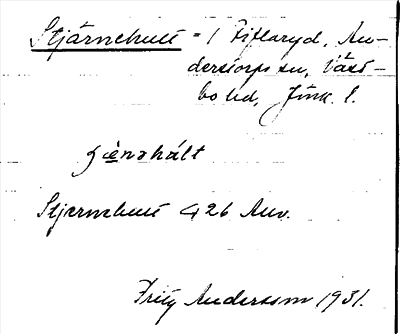 Stjärnehult = 1 Fiflaryd, An-
derstorps sn, Väst-
bo hd, Jönk. l.
Stjernehult 426 Anv.
Fritz Andersson 1931.